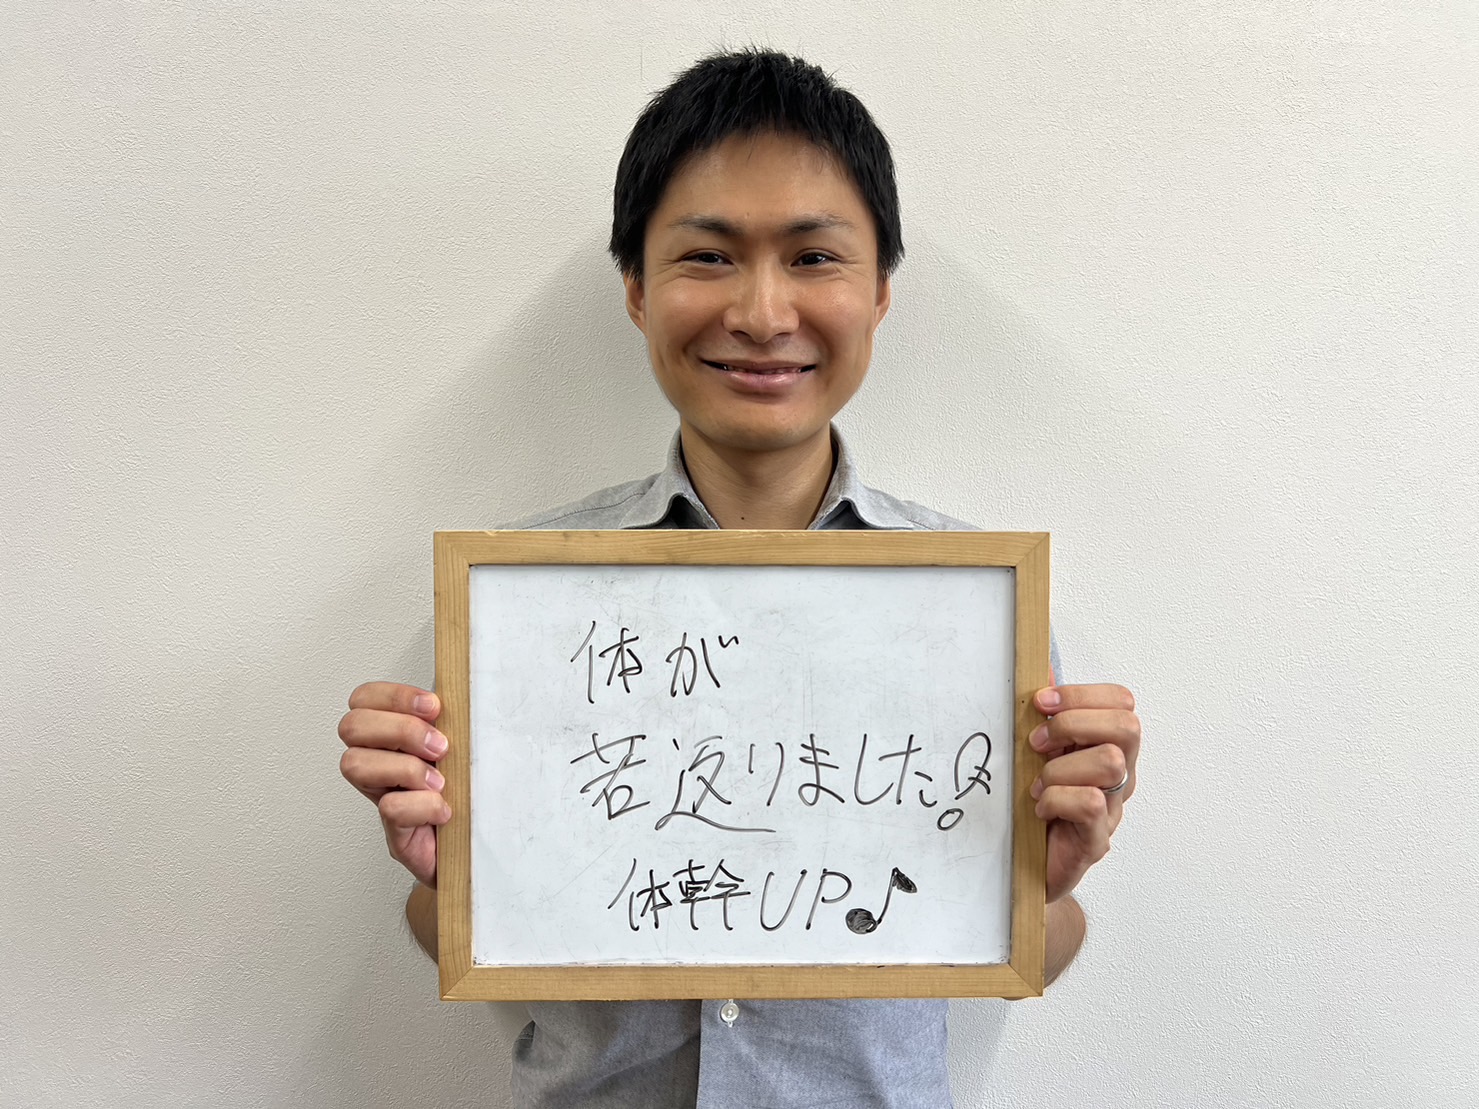 体が
若返りました!
体幹UP♪